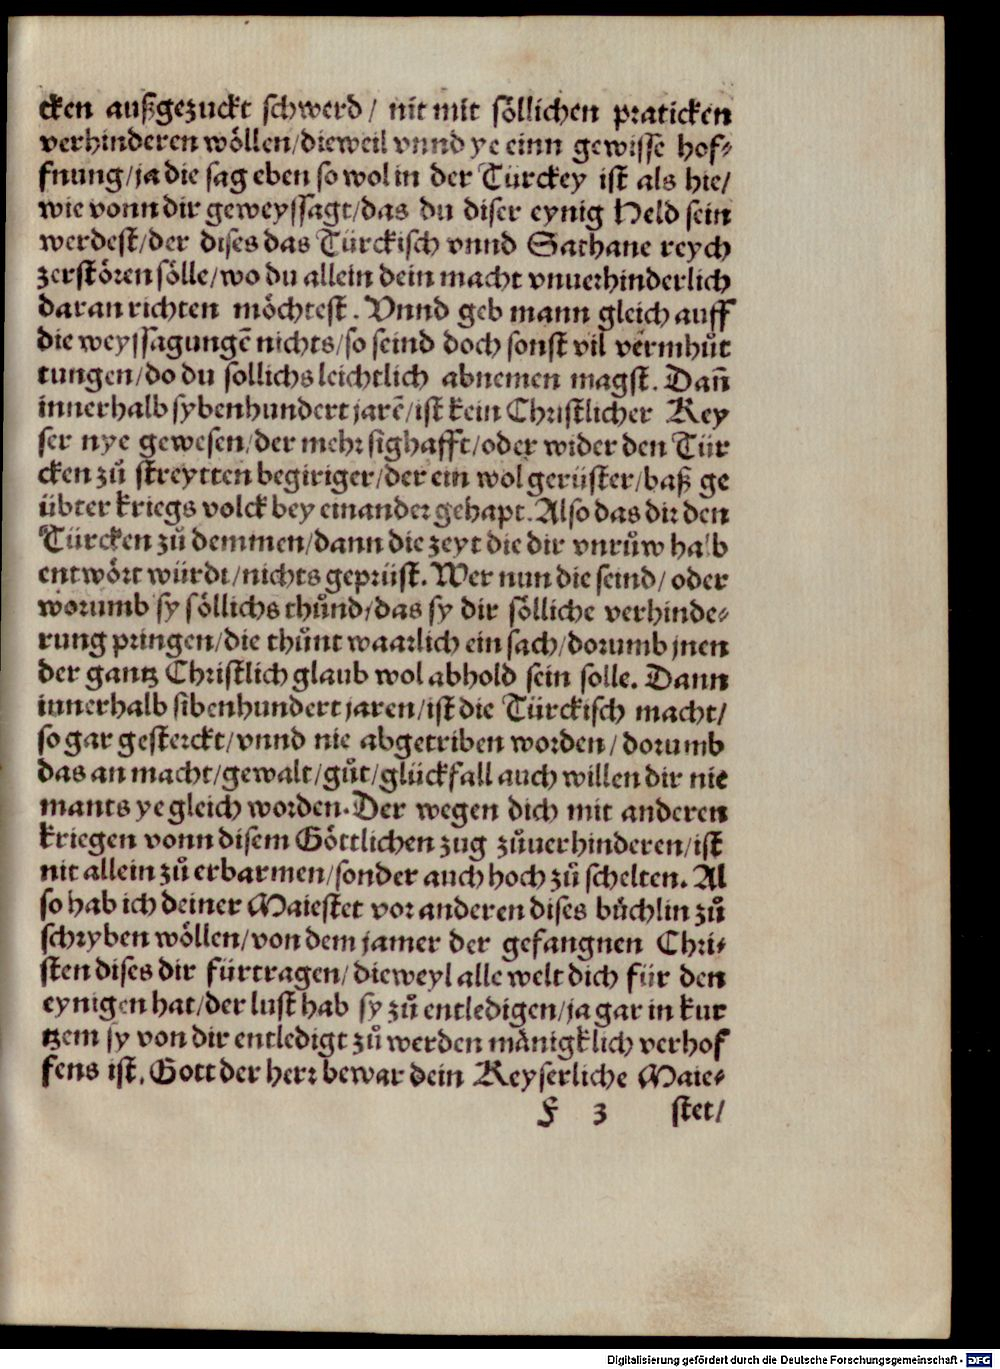 cken außgezuckt schwerd / nit mit söllichen praticken
verhinderen wöllen/dieweil vnnd ye einn gewisse hof⸗
fnung/ja die sag eben so wol in der Türckey ist als hie/
wie vonn dir geweyssagt/das du diser eynig Held sein
werdest/der dises das Türckisch vnnd Sathane reych
zerstören sölle/wo du allein dein macht vnuerhinderlich
daran richten möchtest. Vnnd geb mann gleich auff
die weyssagungē nichts/so seind doch sonst vil vermhůt
tungen/do du sollichs leichtlich abnemen magst. Dañ
innerhalb sybenhundert jarē/ist kein Christlicher Key
ser nye gewesen/der mehr sighafft/oder wider den Tür
cken zů streytten begiriger/der ein wol gerüster/baß ge
übter kriegs volck bey einander gehapt. Also das dir den
Türcken zů demmen/dann die zeyt die dir vnrůw halb
entwört würdt/nichts geprüst. Wer nun die seind/ oder
worumb sy söllichs thůnd/das sy dir sölliche verhinde⸗
rung pringen/die thůnt waarlich ein sach/dorumb jnen
der gantz Christlich glaub wol abhold sein solle. Dann
innerhalb sibenhundert jaren/ist die Türckisch macht/
so gar gesterckt/vnnd nie abgetriben worden/ dorumb
das an macht/gewalt/gůt/glückfall auch willen dir nie
mants ye gleich worden. Der wegen dich mit anderen
kriegen vonn disem Göttlichen zug zůuerhinderen/ist
nit allein zů erbarmen/sonder auch hoch zů schelten. Al
so hab ich deiner Maiestet vor anderen dises bůchlin zů
schryben wöllen/von dem jamer der gefangnen Chri⸗
sten dises dir fürtragen/ dieweyl alle welt dich für den
eynigen hat/der lust hab sy zů entledigen/ja gar in kur
tzem sy von dir entledigt zů werden mänigklich verhof
fens ist. Gott der herr bewar dein Keyserliche Maie⸗
F 3 stet/
Digitalisierung gefördert durch die Deutsche Forschungsgemeinschaft - DFG